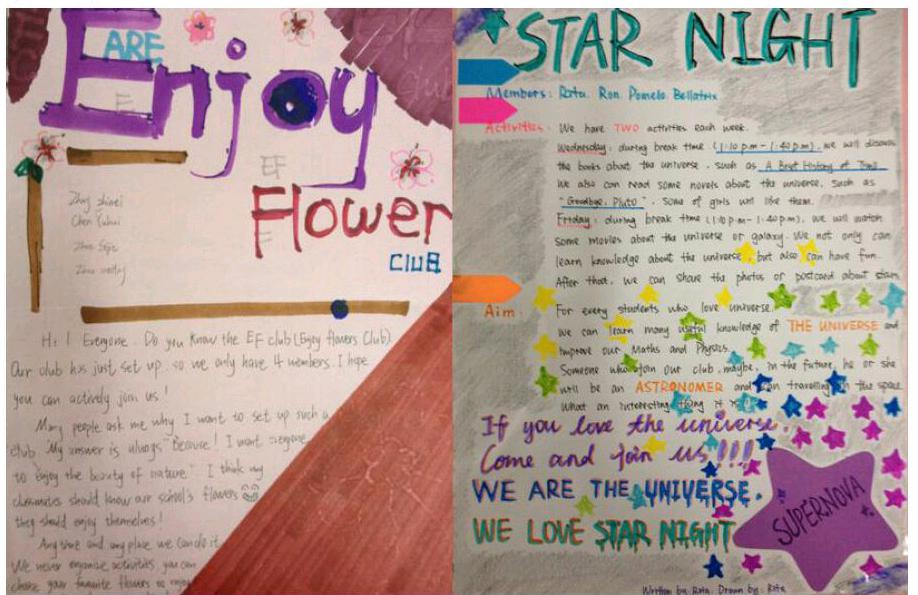 ARE
Enjoy
EF
Flower
CLUB
Chen
Hi! Everyone. Do you know the EF club (Enjoy flowers Club)
Our club has just set up. so we only have 4 members. I hope
you can actively join us!
Many people ask me why I want to set up such a
club. My answer is always "Because! I want everyone
to enjoy the beauty of nature." I think my
classmates should know our school's flowers
they should enjoy themselves!
Any time and any place we can do it.
We never organize activities, you can
choose your favorite flowers to enjoy
STAR NIGHT
Members: Rita. Ron. Pomelo. Bellatrix
Activities: We have TWO activities each week.
Wednesday: during break time (1:10 p.m - 1:40 p.m). we will discuss
the books about the universe. such as A Brief History of Time
We also can read some novels about the universe. such as
"Goodbye, Pluto". Some of girls will like them.
Friday: during break time (1:10 p.m - 1:40 p.m). we will watch
some movies about the universe or galaxy. We not only can
learn knowledge about the universe, but also can have fun.
After that, we can share the photos or postcard about stars
Aim: For every students who love universe.
We can learn many useful knowledge of THE UNIVERSE and
improve our Maths and Physics.
Someone who join our club, maybe, in the future, he or she
will be an ASTRONOMER and can travelling in the space
What an interesting thing it is
If you love the universe.
Come and join us!!!
WE ARE THE UNIVERSE.
WE LOVE STAR NIGHT
SUPERNOVA
Written by: Rita. Drawn by: Rita